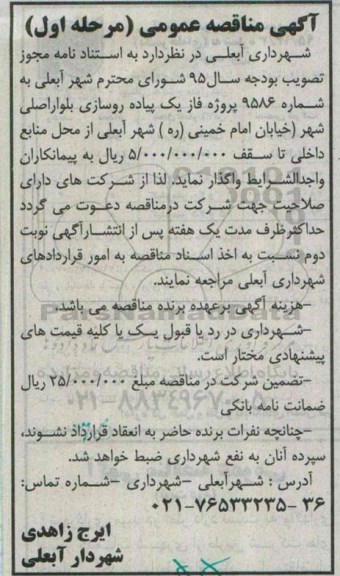 آگهی مناقصه عمومی (مرحله اول)
شهرداری آبعلی در نظردارد به استناد نامه مجوز
تصویب بودجه سال ۹۵ شورای محترم شهر آبعلی به
شماره ۹۵۸۶ پروژه فاز یک پیاده روسازی بلواراصلی
شهر (خیابان امام خمینی (ره ) شهر آبعلی از محل منابع
داخلی تا سقف ۵/۰۰۰/۰۰۰/۰۰۰ ریال به پیمانکاران
واجدالشرایط واگذار نماید. لذا از شرکت های دارای
صلاحیت جهت شرکت درمناقصه دعوت می گردد
حداکثرظرف مدت یک هفته پس از انتشارآگهی نوبت
دوم نسبت به اخذ اسناد مناقصه به امور قراردادهای
شهرداری آبعلی مراجعه نمایند.
-هزینه آگهی برعهده برنده مناقصه می باشد.
-شهرداری در رد یا قبول یک یا کلیه قیمت های
پیشنهادی مختار است.
-تضمین شرکت در مناقصه مبلغ ۲۵/۰۰۰/۰۰۰ ریال
ضمانت نامه بانکی
-چنانچه نفرات برنده حاضر به انعقاد قرارداد نشوند،
سپرده آنان به نفع شهرداری ضبط خواهد شد.
آدرس : شهرآبعلی -شهرداری -شماره تماس:
۳۶ -۷۶۵۳۳۲۳۵-۰۲۱
ایرج زاهدی
شهردار آبعلی